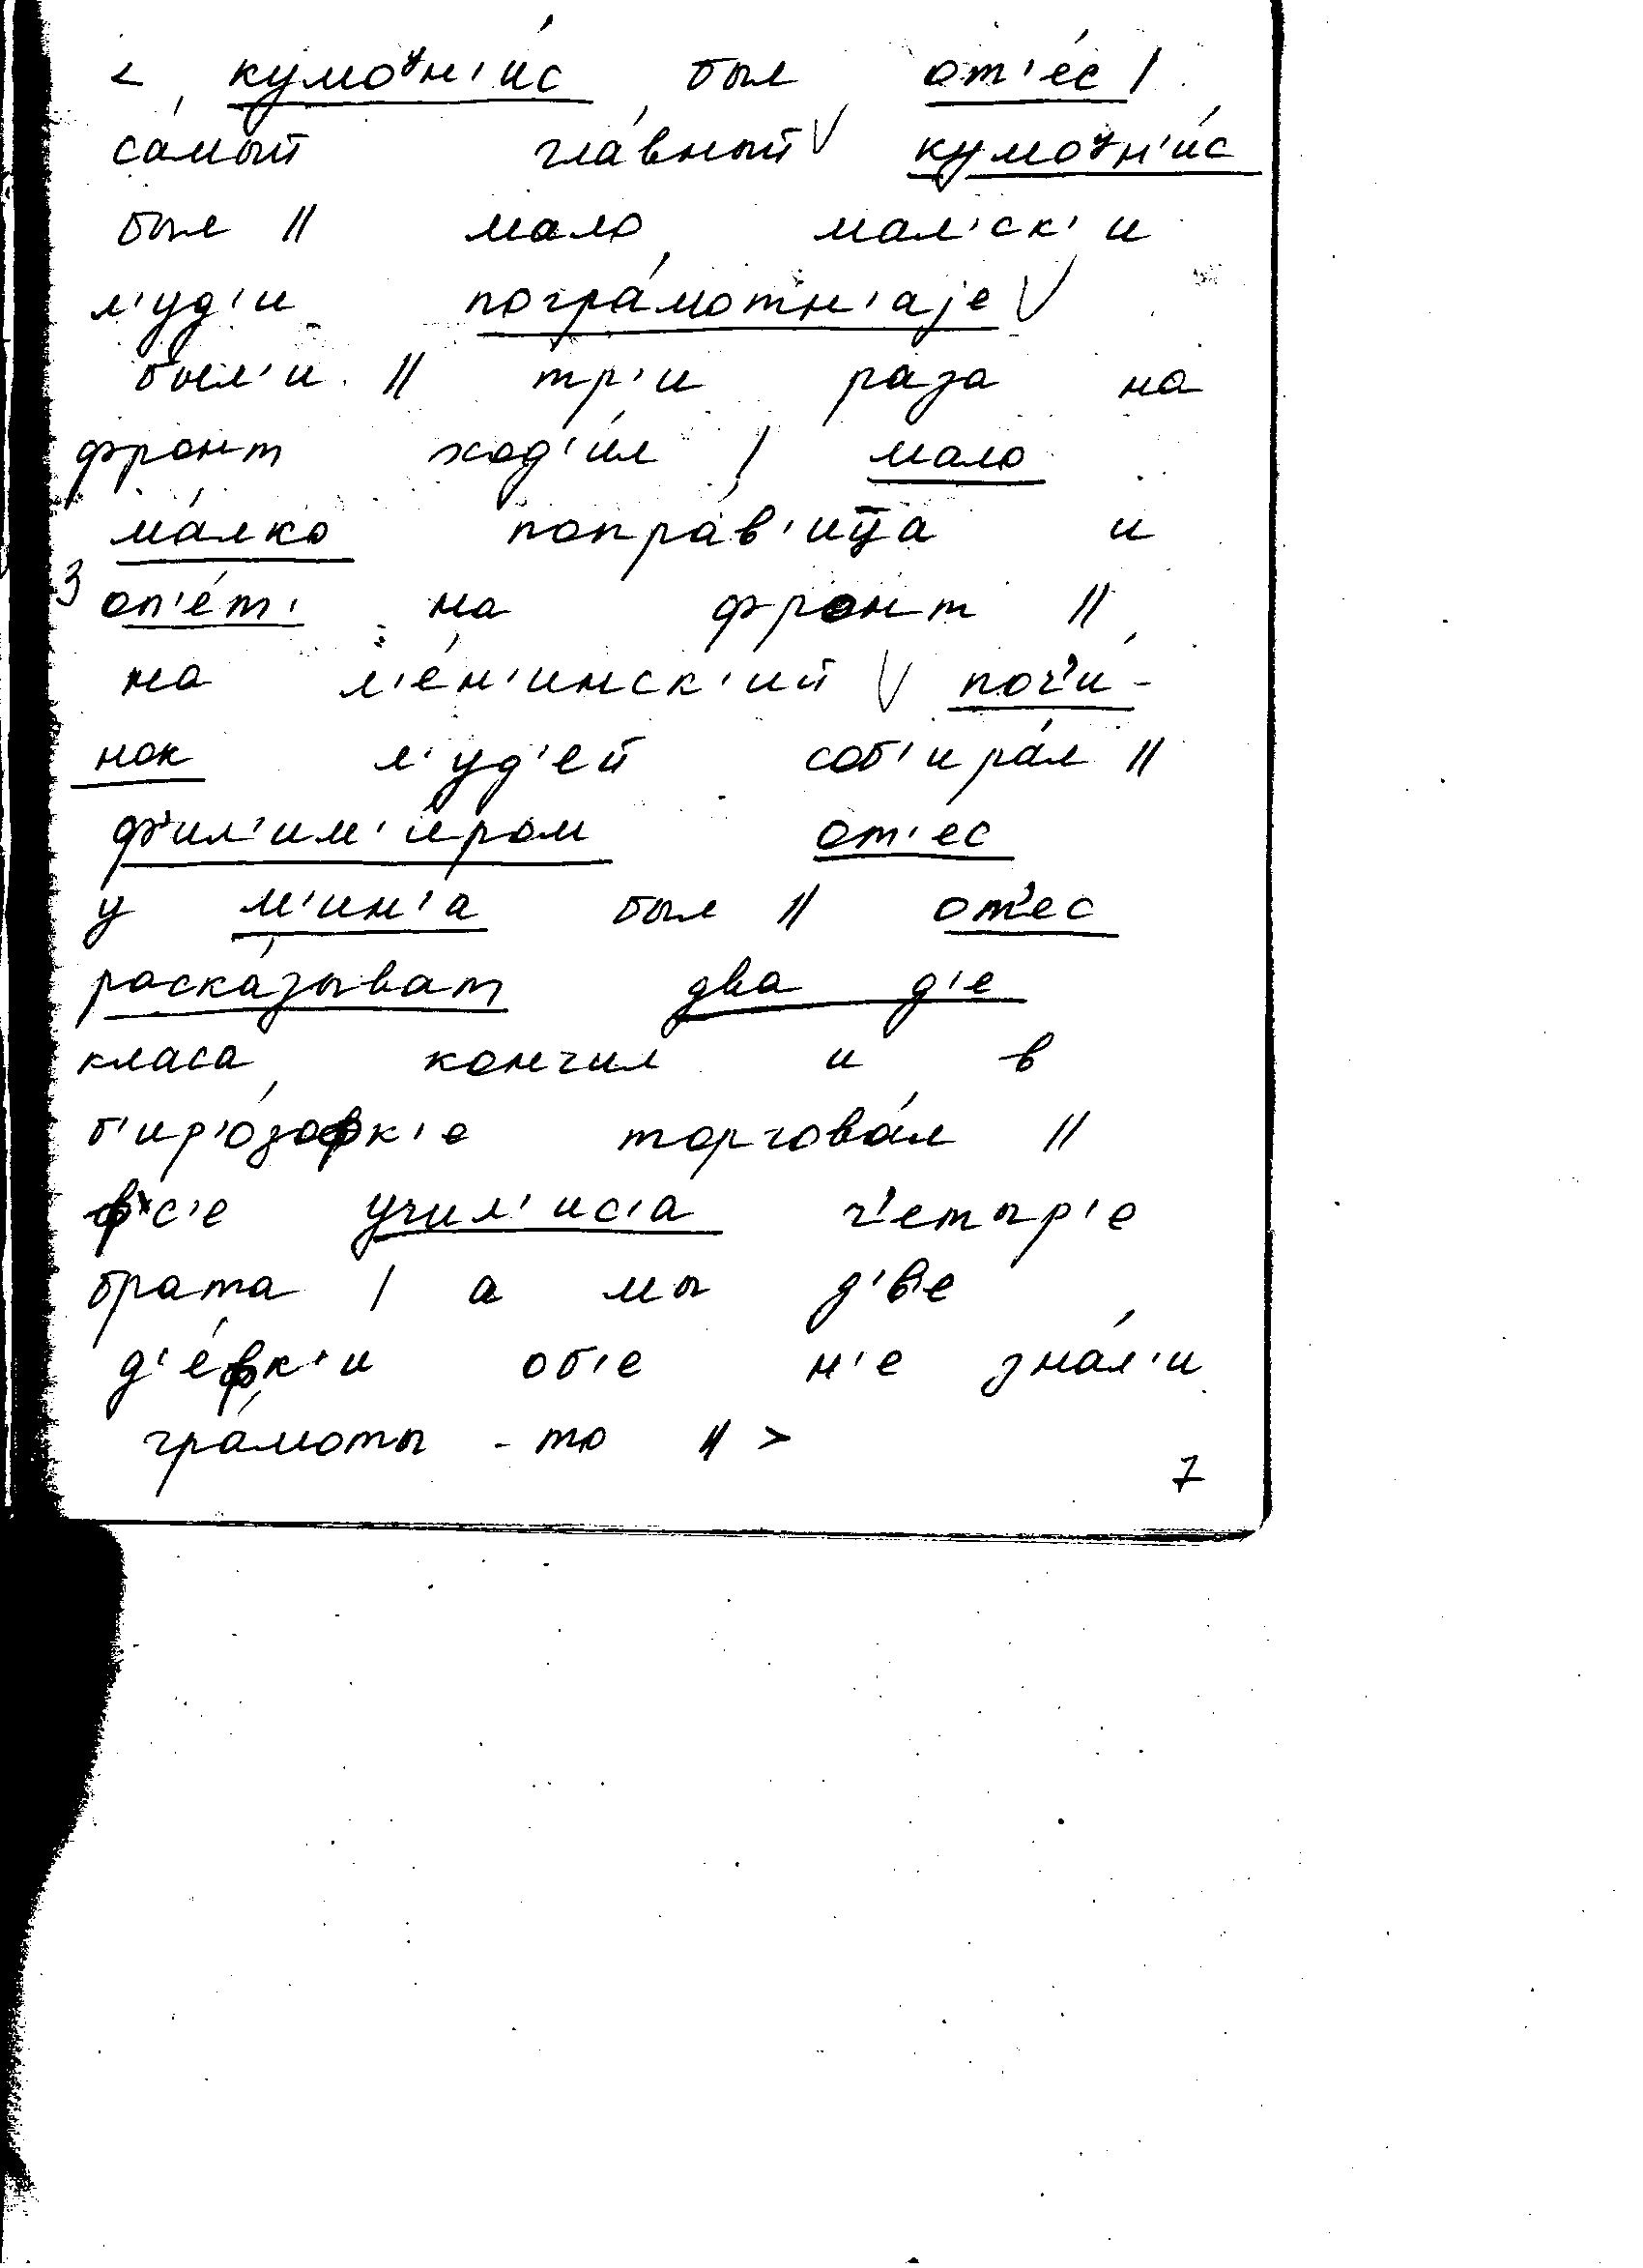 < кумоун'и́с был от'е́с /
са́мый гла́вный V кумоун'и́с
был // мало мал'ск'и
л'уд'и погра́мотн'аjе V
был'и // тр'и раза на
фронт ход'и́л / мало
ма́лко попра́в'ица и
3 оп'е́т' на фронт //
на л'е́н'инск'ий V поч'и-
нок л'уд'ей соб'ира́л //
ф'ил'им'и́ром от'ес
у м'ин'а был // от'ес
раска́зыват два д'е
класа кончил и в
б'ир'о́зофк'е торгова́л //
фс'е учил'ис'а ч'етыр'е
брата / а мы д'в'е
д'е́фк'и об'е н'е зна́л'и
гра́моты - то // >
7